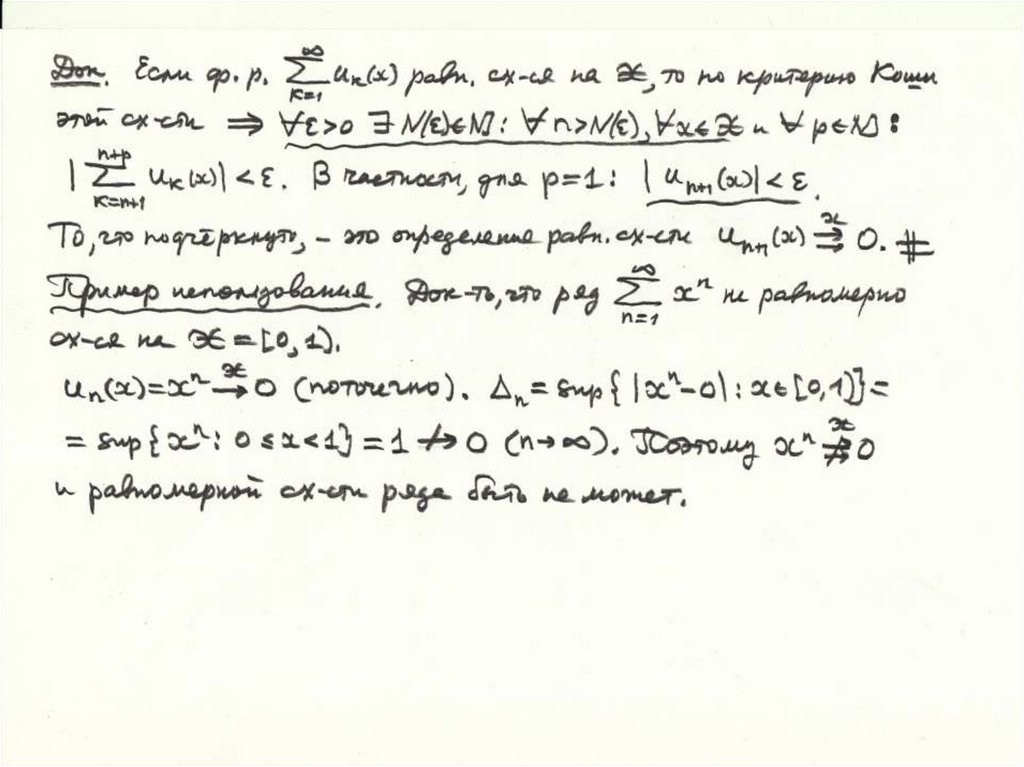 Док. Если ф. р. ∑_{k=1}^{∞} u_k(x) равн. сх-ся на 𝒳, то по критерию Коши
этой сх-сти ⟹ ∀ε>0 ∃ N(ε)∈ℕ: ∀ n>N(ε), ∀x∈𝒳 и ∀ p∈ℕ:
|∑_{k=n+1}^{n+p} u_k(x)| < ε. В частности, для p=1: |u_{n+1}(x)| < ε.
То, что подчёркнуто, – это определение равн. сх-сти u_{n+1}(x) ⇉^{𝒳} 0. #
Пример использования. Док-ть, что ряд ∑_{n=1}^{∞} x^n не равномерно
сх-ся на 𝒳 = [0,1).
u_n(x)=x^n →^{𝒳} 0 (поточечно). Δ_n = sup{|x^n-0|: x∈[0,1)}=
= sup{x^n: 0≤x<1} = 1 ↛ 0 (n→∞). Поэтому x^n ⇉̸^{𝒳} 0
и равномерной сх-сти ряда быть не может.